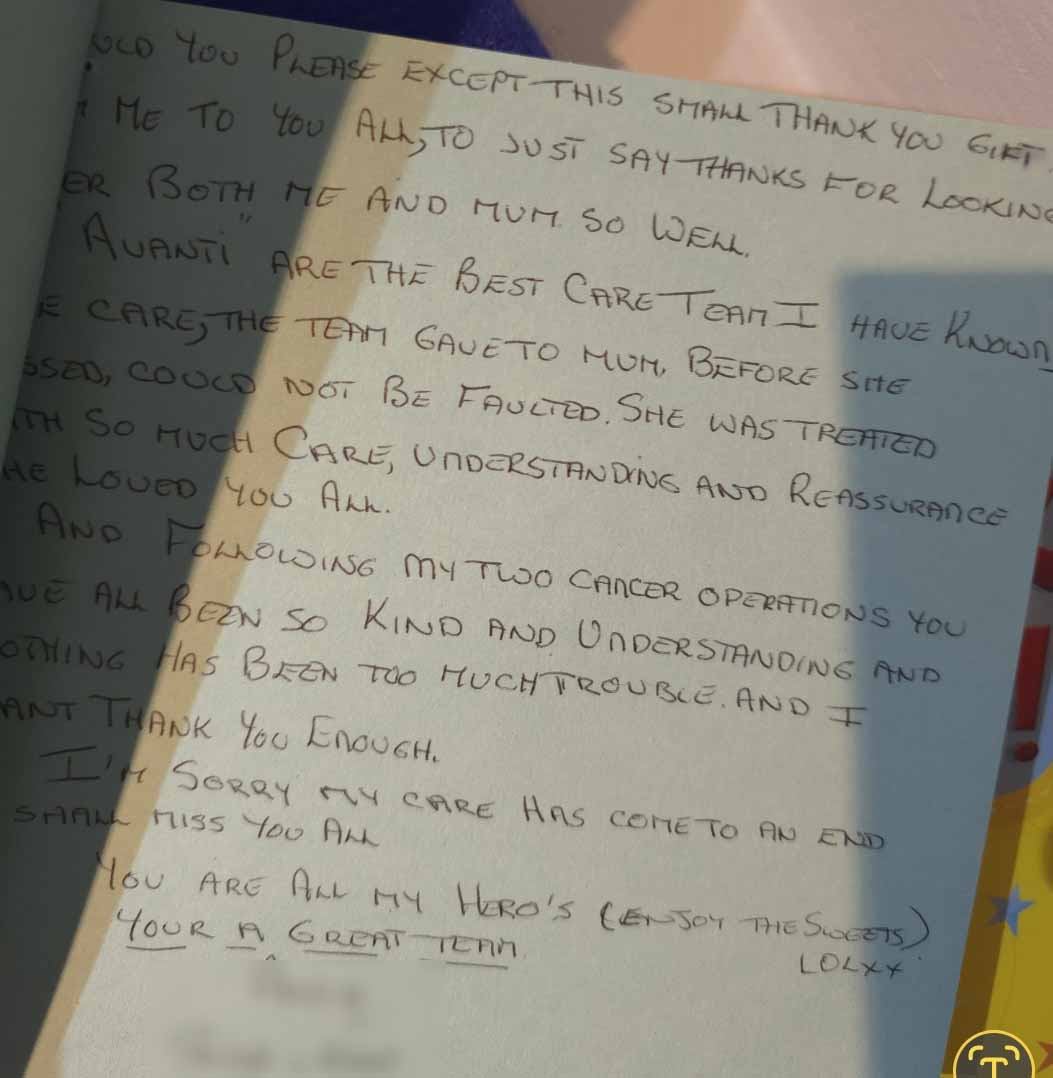 OULD YOU PLEASE EXCEPT THIS SMALL THANK YOU GIFT
ME TO YOU ALL, TO JUST SAY THANKS FOR LOOKING
ER BOTH ME AND MUM SO WELL.
AVANTI" ARE THE BEST CARE TEAM I HAVE KNOWN
E CARE, THE TEAM GAVE TO MUM, BEFORE SHE
SSED, COULD NOT BE FAULTED. SHE WAS TREATED
ITH SO MUCH CARE, UNDERSTANDING AND REASSURANCE
HE LOVED YOU ALL.
AND FOLLOWING MY TWO CANCER OPERATIONS YOU
AVE ALL BEEN SO KIND AND UNDERSTANDING AND
OTHING HAS BEEN TOO MUCH TROUBLE. AND I
ANT THANK YOU ENOUGH.
I'M SORRY MY CARE HAS COME TO AN END
SHALL MISS YOU ALL
YOU ARE ALL MY HERO'S (ENJOY THE SWEETS)
YOUR A GREAT TEAM. LOL XX